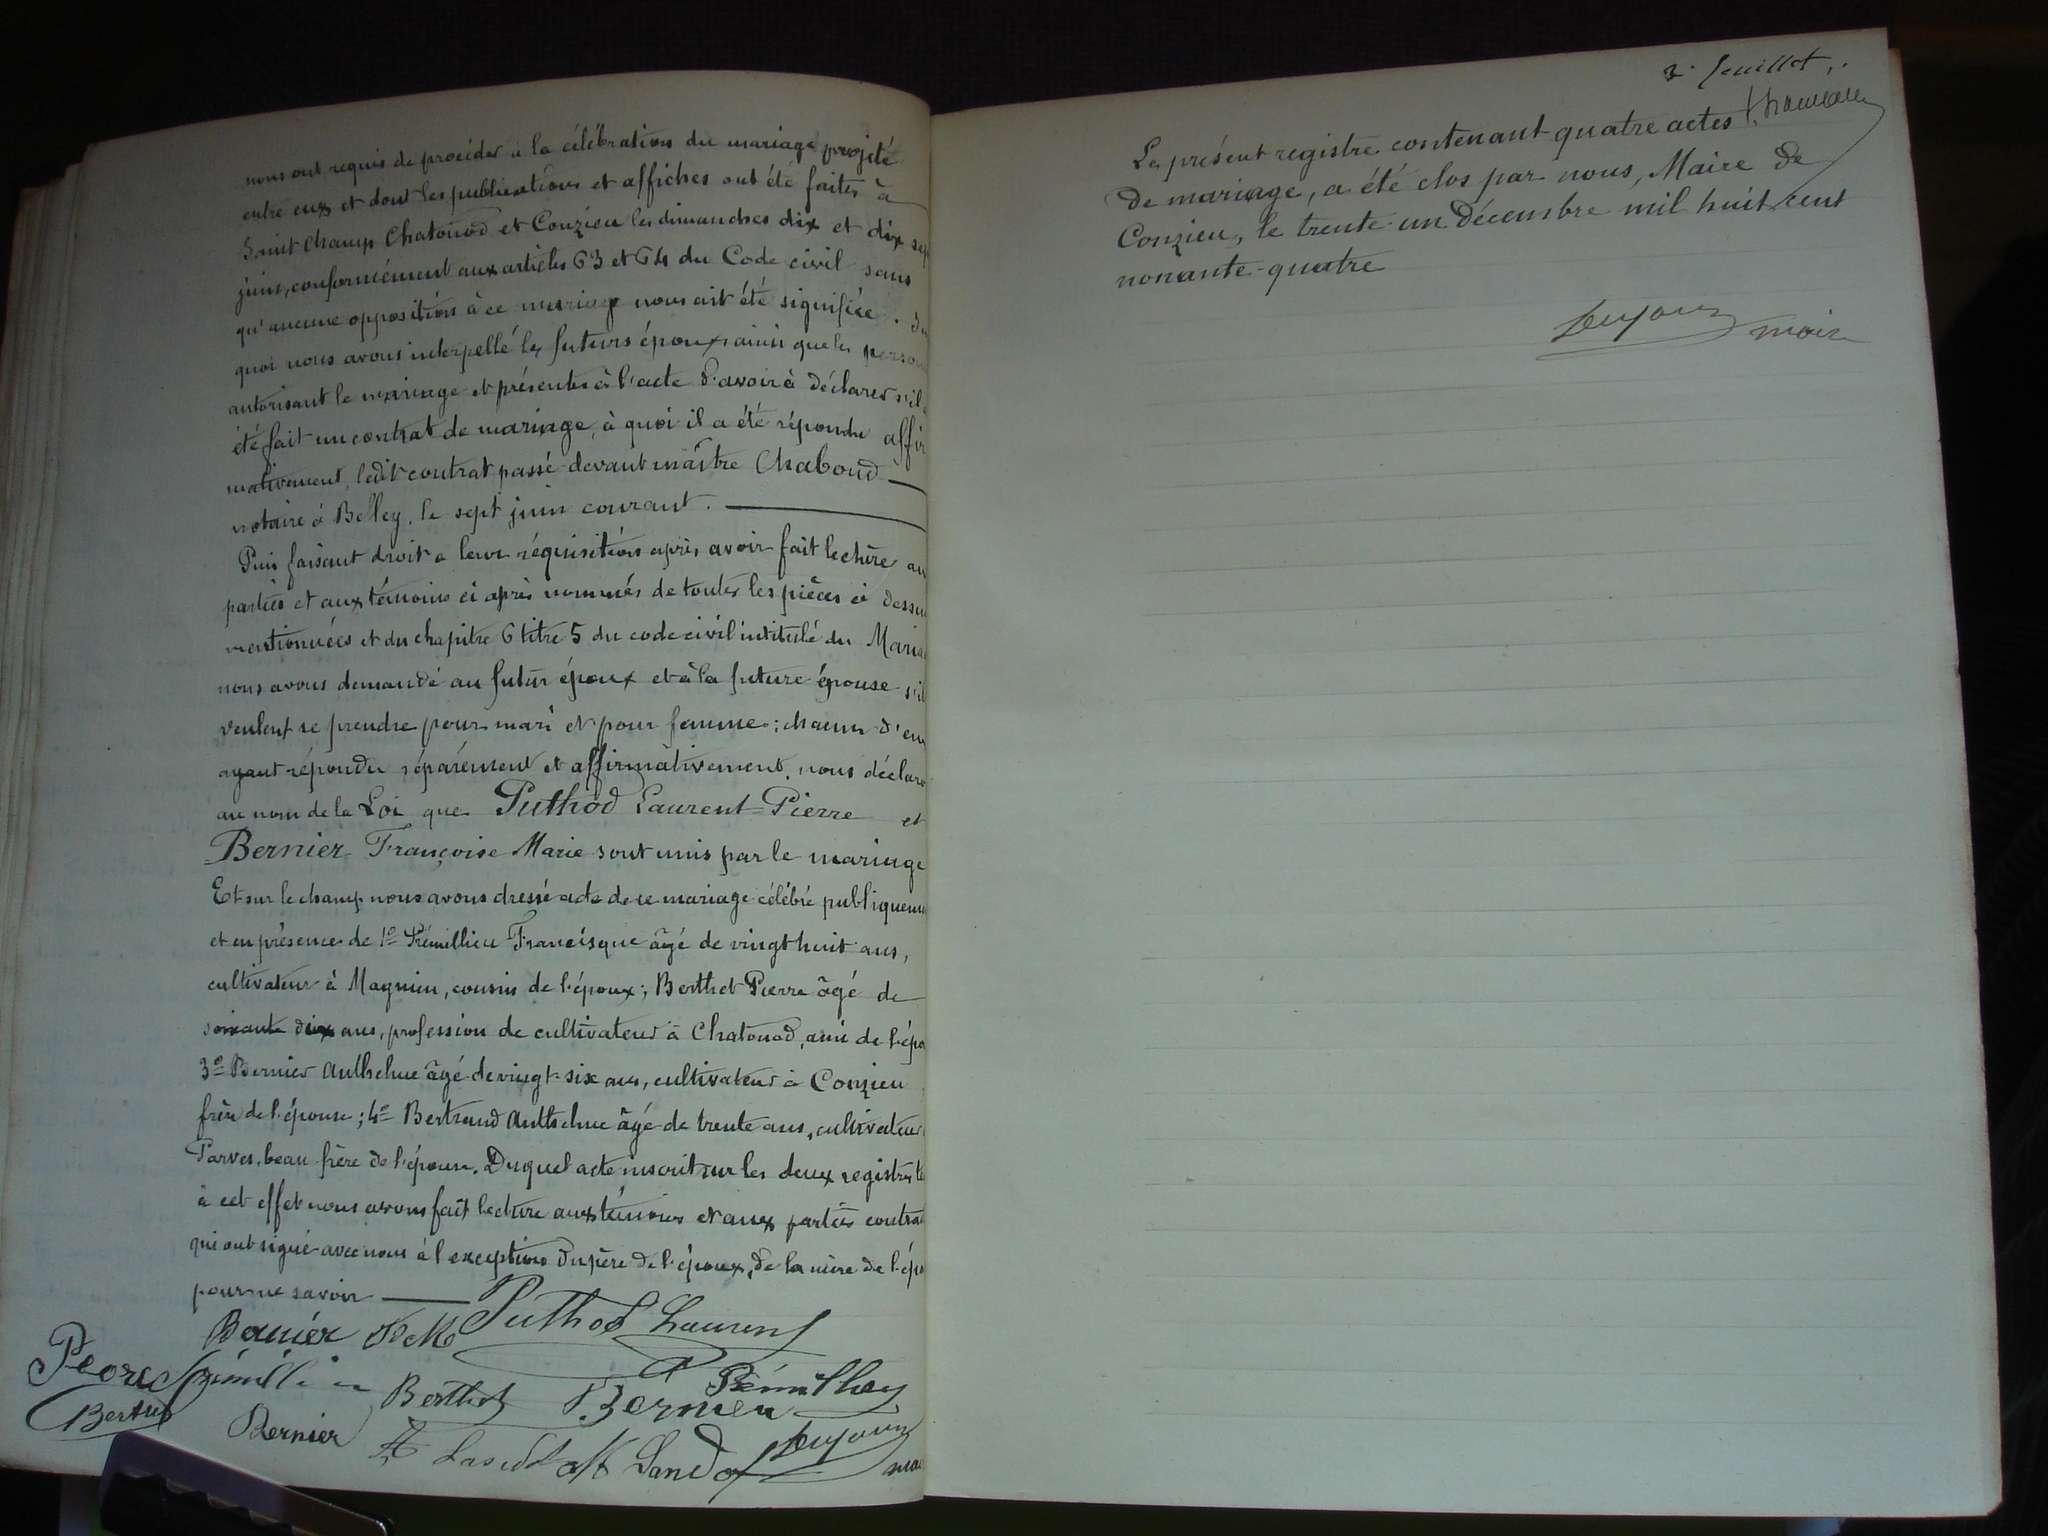 nous ont requis de procéder à la célébration du mariage projeté
entre eux et dont les publications et affiches ont été faites à
Saint Champ Chatonod et Conzieu les dimanches dix et dix sep
juin, conformément aux articles 63 et 64 du Code civil sans
qu'aucune opposition à ce mariage nous ait été signifiée. Su
quoi nous avons interpellé les futurs époux ainsi que les perso
autorisant le mariage et présentes à l'acte d'avoir à déclarer s'il
été fait un contrat de mariage, à quoi il a été répondu affir
mativement, ledit contrat passé devant maître Chaboud
notaire à Belley, le sept juin courant.
Puis faisant droit a leur réquisition après avoir fait lecture au
parties et aux témoins ci après nommés de toutes les pièces ci dessu
mentionnées et du chapitre 6 titre 5 du code civil intitulé du Maria
nous avons demandé au futur époux et à la future épouse s'il
veulent se prendre pour mari et pour femme; chacun d'eu
ayant répondu séparément et affirmativement, nous déclaro
au nom de la Loi que Puthod Laurent-Pierre et
Bernier Françoise Marie sont unis par le mariage
Et sur le champ nous avons dressé acte de ce mariage célébré publiqueme
et en présence de 1º Prémillieu Francisque âgé de vingt huit ans,
cultivateur à Magnieu, cousin de l'époux; Berthet Pierre âgé de
soixante dix ans, profession de cultivateur à Chatonod, ami de l'épo
3º Bernier Anthelme âgé de vingt-six ans, cultivateur à Conzieu
frère de l'épouse; 4º Bertrand Anthelme âgé de trente ans, cultivateur
Parves, beau frère de l'épouse. Duquel acte inscrit sur les deux registres te
à cet effet nous avons fait lecture aux témoins et aux parties contra
qui ont signé avec nous à l'exception du père de l'époux, de la mère de l'épo
pour ne savoir
Bernier Puthod Laurent
Berthet Bernier
Bernier
3e feuillet
Le présent registre contenant quatre actes
de mariage, a été clos par nous, Maire de
Conzieu, le trente-un Décembre mil huit cent
nonante-quatre
maire